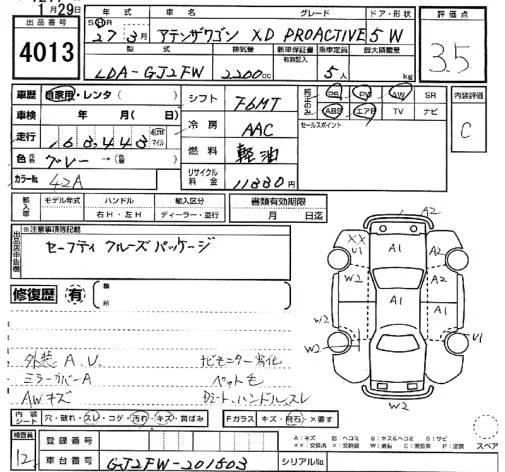 1月29日
出品番号
4013
年式 車名 グレード ドア・形状
S H R 27年 3月 アテンザワゴン XD PROACTIVE 5 W
型式 排気量 新車保証書 有効記入 乗車定員 最大積載量
LDA-GJ2FW 2200cc 5人 kg
評価点
3.5
車歴 自家用・レンタ( ) シフト F6MT 純正のみ PS PW AW SR
内装評価
C
車検 年 月( 日) 冷房 AAC ABS エアB TV ナビ
セールスポイント
走行 163,443 km マイル 燃料 軽油
色 グレー →(色替) リサイクル料金 11880円
カラーNo. 42A
輸入車 モデル年式 ハンドル 右H・左H 輸入区分 ディーラー・並行 書類有効期限 月 日迄
出品店申告欄 ※注意事項等記載
セーフティクルーズパッケージ
修復歴 有 箇所
外装 A.U. ナビモニター劣化
ミラーカバーA ペット毛
AWキズ Dシート、ハンドルスレ
A2
XX
U1
A1
A2
W2
A2
A1
A1
W2
W2
U1
A2
W2
内装シート 穴・破れ・スレ・コゲ・汚れ・キズ・黄ばみ Fガラス キズ・飛石・×要す
スペア
検査員
12
登録番号
車台番号 GJ2FW-201503 シリアルNo.
A:キズ B:ヘコミ E:キズ&ヘコミ S:サビ